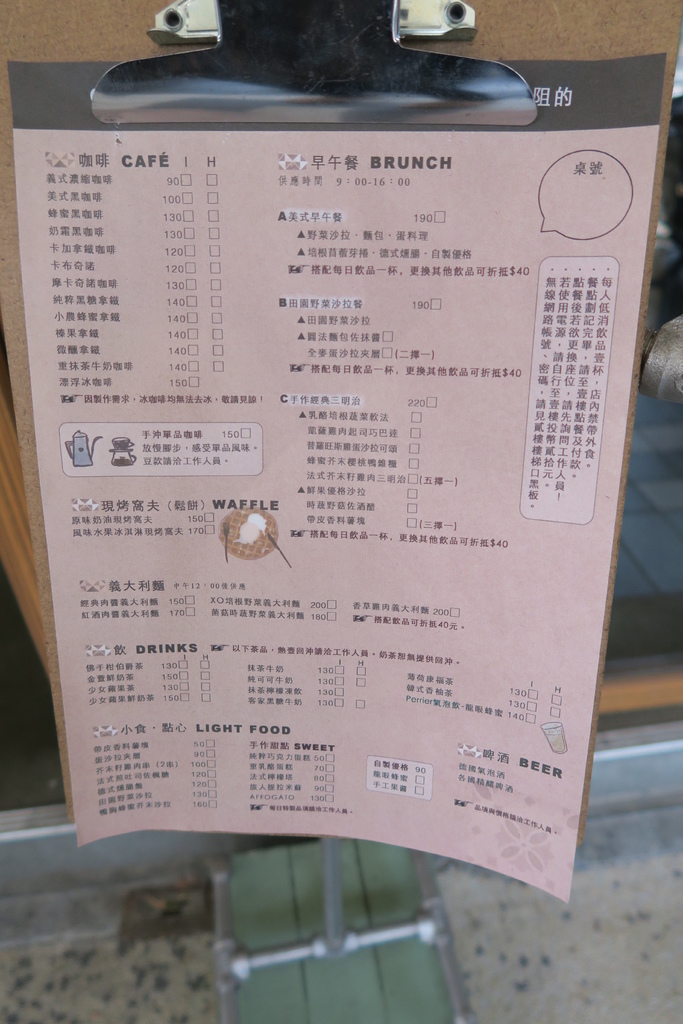 阻的
咖啡 CAFÉ I H
義式濃縮咖啡 90
美式黑咖啡 100
蜂蜜黑咖啡 130
奶霜黑咖啡 130
卡加拿鐵咖啡 120
卡布奇諾 120
摩卡奇諾咖啡 130
純粹黑糖拿鐵 140
小農蜂蜜拿鐵 140
榛果拿鐵 140
微醺拿鐵 140
重抹茶牛奶咖啡 140
漂浮冰咖啡 150
因製作需求,冰咖啡均無法去冰,敬請見諒!
手沖單品咖啡 150
放慢腳步,感受單品風味。
豆款請洽工作人員。
現烤窩夫(鬆餅) WAFFLE
原味奶油現烤窩夫 150
風味水果冰淇淋現烤窩夫 170
早午餐 BRUNCH
供應時間 9:00-16:00
A美式早午餐 190
▲野菜沙拉・麵包・蛋料理
▲培根苜蓿芽捲・德式燻腸・自製優格
搭配每日飲品一杯,更換其他飲品可折抵$40
B田園野菜沙拉餐 190
▲田園野菜沙拉
▲圓法麵包佐抹醬
全麥蛋沙拉夾層(二擇一)
搭配每日飲品一杯,更換其他飲品可折抵$40
C手作經典三明治 220
▲乳酪培根蔬菜軟法
凱薩雞肉起司巧巴達
普羅旺斯雞蛋沙拉可頌
蜂蜜芥末櫻桃鴨雜糧
法式芥末籽雞肉三明治(五擇一)
▲鮮果優格沙拉
時蔬野菇佐酒醋
帶皮香料薯塊(三擇一)
搭配每日飲品一杯,更換其他飲品可折抵$40
桌號
每人低消飲品壹杯,店內禁帶外食。
餐點劃記完畢,請至壹樓點餐及付款。
點餐後若欲更換座位,請先詢問工作人員!
若使用電源,請自行至壹樓投幣貳拾元。
無線網路帳號、密碼,請見貳樓樓梯口黑板。
義大利麵 中午12:00後供應
經典肉醬義大利麵 150 XO培根野菜義大利麵 200 香草雞肉義大利麵 200
紅酒肉醬義大利麵 170 菌菇時蔬野菜義大利麵 180 搭配飲品可折抵40元。
飲 DRINKS 以下茶品,熱壺回沖請洽工作人員。奶茶恕無提供回沖。
I H I H I H
佛手柑伯爵茶 130
金萱鮮奶茶 150
少女蘋果茶 130
少女蘋果鮮奶茶 150
抹茶牛奶 130
純可可牛奶 130
抹茶檸檬凍飲 130
客家黑糖牛奶 130
薄荷康福茶 130
韓式香柚茶 130
Perrier氣泡飲-龍眼蜂蜜 140
小食・點心 LIGHT FOOD
帶皮香料薯塊 50
蛋沙拉夾層 90
芥末籽雞肉串(2串) 100
法式煎吐司佐楓糖 120
德式燻腸盤 120
田園野菜沙拉 130
鴨胸蜂蜜芥末沙拉 160
手作甜點 SWEET
純粹巧克力蛋糕 50
重乳酪蛋糕 70
法式檸檬塔 80
旅人提拉米蘇 90
AFFOGATO 130
每日特製品項請洽工作人員。
自製優格 90
龍眼蜂蜜
手工果醬
啤酒 BEER
德國氣泡酒
各國精釀啤酒
品項與價格請洽工作人員。